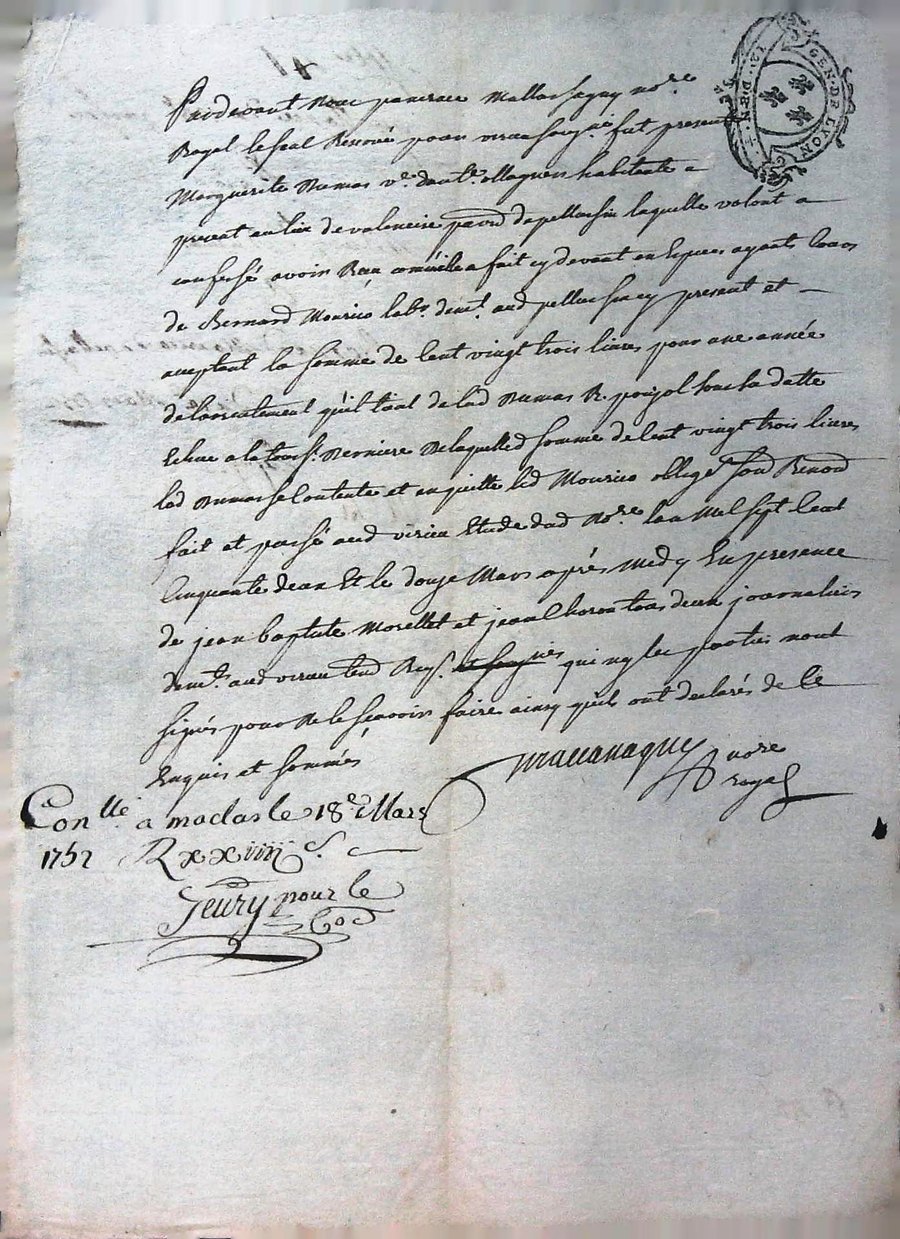 GEN. DE LYON
Pardevant nous pancrace Mallassagny no.re
Royal le seal Renoué pour virieu soussigné fut presente
Marguerite Dumas v.e d'ant.e Magnien habitante a
present au lieu de valencise parr.e de pellussin laquelle volont a
confessé avoir Reçu comm'elle a fait cy devant en especes ayants cours
de Bernard Mourico lab.r dem.t aud pellussin cy present et
acceptant la somme de Cent vingt trois livres pour une année
de larrentement qu'il tient de lad Dumas R. par sous sa datte
Echue a la touss.t Derniere De laquelled somme de Cent vingt trois livres
lad Dumas se Contente et en quitte led Mourico oblige soud Renond
fait et passé aud virieu Etude dud No.re lan Mil sept Cent
Cinquante deux Et le douze Mars après midy En presence
de jean baptiste Morellet et jean Choron tous deux journaliers
dem.ts aud virieu temd Req.s qui ny les parties n'ont
signés pour Ne le sçavoir faire ainsy qu'ils ont declarés de Ce
Enquis et sommés
nore
royal
Con.llé a maclas le 18.e Mars
1752 R xxviii s.
Jeury pour le